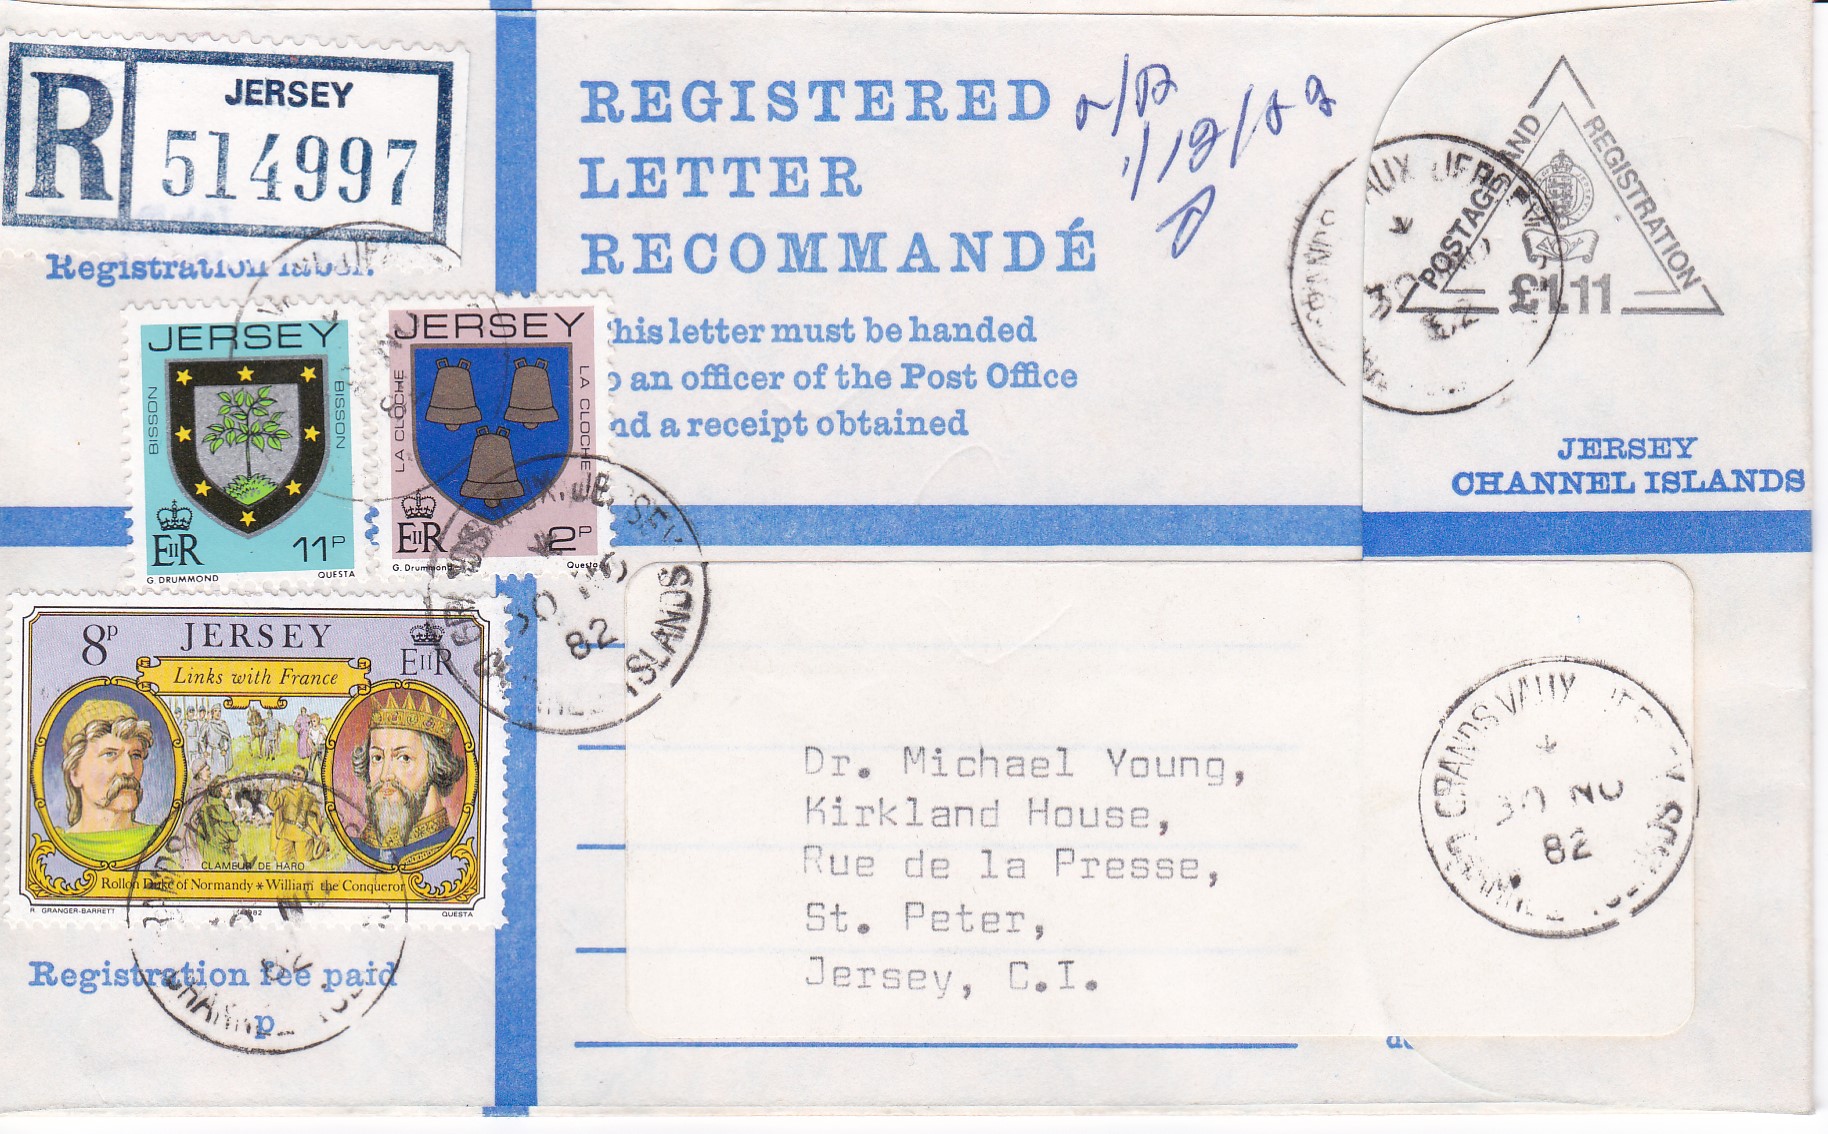 R
JERSEY
514997
Registration label
REGISTERED
LETTER
RECOMMANDÉ
his letter must be handed
an officer of the Post Office
nd a receipt obtained
POSTAGE AND REGISTRATION
£1.11
JERSEY
CHANNEL ISLANDS
JERSEY
BISSON
BISSON
EIIR
11P
G. DRUMMOND
QUESTA
JERSEY
LA CLOCHE
LA CLOCHE
EIIR
2P
G. Drummond
Questa
8P
JERSEY
EIIR
Links with France
CLAMEUR DE HARO
Rollon Duke of Normandy * William the Conqueror
R. GRANGER-BARRETT
1982
QUESTA
JERSEY
30 NO
82
ISLANDS
Registration fee paid
p
Dr. Michael Young,
Kirkland House,
Rue de la Presse,
St. Peter,
Jersey, C.I.
GRANDS VAUX JERSEY
30 NO
82